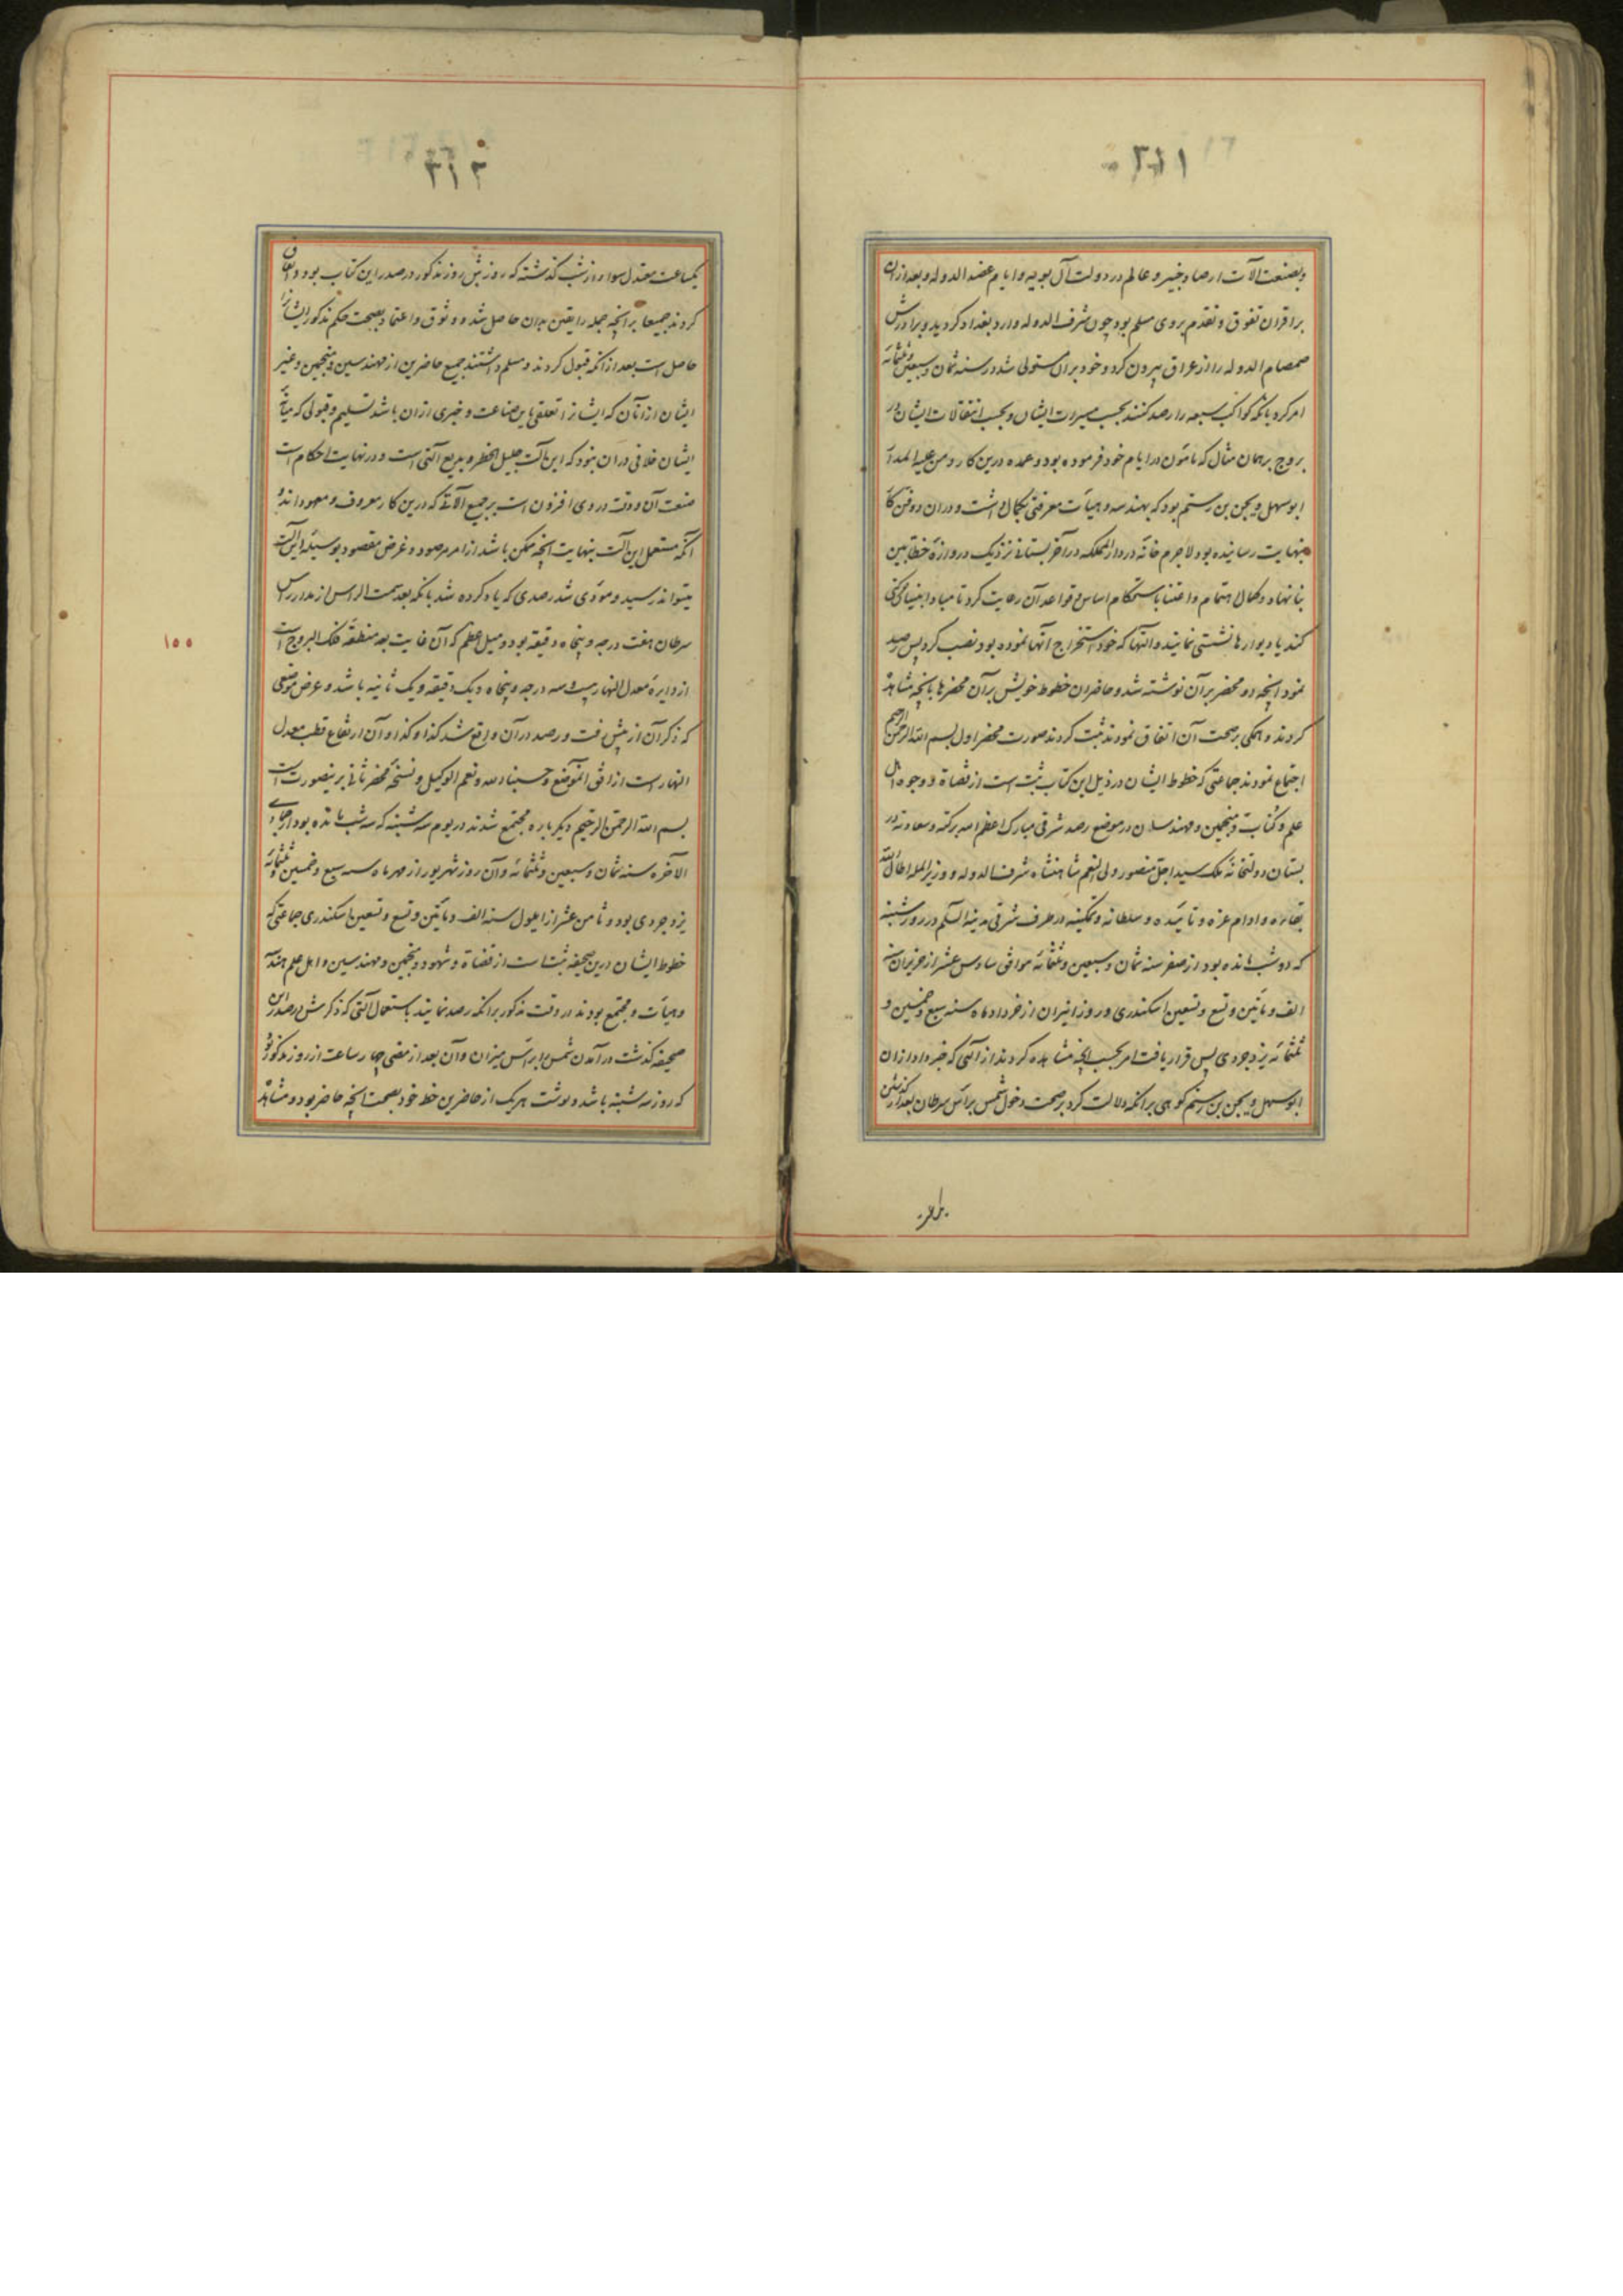 وبصنعت آلات ارصاد خبیر و عالم در دولت آل بویه و ایام عضد الدوله و بعد از ان
بر اقران تفوق و تقدم بر وی مسلم بود چون شرف الدوله وارد بغداد گردید و برادرش
صمصام الدوله را از عراق بیرون کرد و خود بر ان مستولی شد در سنه ثمان و سبعین و ثلثمائه
امر کرد بانکه کواکب سبعه را رصد کنند بحسب مسیرات ایشان و بحسب انتقالات ایشان در
بروج بر همان مثال که مامون در ایام خود فرموده بود و عمده درین کار و من علیه المدار
ابو سهل ویجن بن رستم بود که بهندسه و هیأت معرفتی بکمال داشت و در ان دو فن کار
بنهایت رسانیده بود لاجرم خانه در دار المملکه در آخر بستانی نزدیک دروازه خطابین
بنا نهاد و کمال اهتمام و اعتنا باستحکام اساس و قواعد آن رعایت کرد تا مبادا بنیانی
کند یا دیوارها نشستی نمایند و آلتها که خود استخراج آنها نموده بود نصب کرد پس رصد
نمود انچه دو محضر بر آن نوشته شد و حاضران خطوط خویش بر آن محضرها بانچه مشاهده
کردند و همگی بر صحت آن اتفاق نمودند ثبت کردند صورت محضر اول بسم الله الرحمن الرحیم
اجتماع نمودند جماعتی که خطوط ایشان در ذیل این کتاب ثبت است از قضاة و وجوه اهل
علم و کتاب و منجمین و مهندسان در موضع رصد شرقی مبارک اعظم الله برکته و سعادته در
بستان دولتخانه ملک سید اجل منصور ولی النعم شاهنشاه شرف الدوله و وزیر المله اطال الله
بقاءه و ادام عزه و تائیده و سلطانه و تمکینه در طرف شرقی مدینه السلام در روز شنبه
که دو شب مانده بود از صفر سنه ثمان و سبعین و ثلثمائه موافق سادس عشر از حزیران سنه
الف و مأتین و تسع و تسعین اسکندری و روز انیران از خرداد ماه سنه سبع و خمسین و
ثلثمائه یزدجردی پس قرار یافت امر بحسب انچه مشاهده کردند از آلتی که خبر داد از ان
ابو سهل ویجن بن رستم کوهی بر انکه دلالت کرد بر صحت دخول شمس براس سرطان بعد از گذشتن
یکساعت معتدل سواء از شب گذشته که روزش روز مذکور در صدر این کتاب بود و اتفاق
کردند جمیعا بر انچه جمله را یقین بدان حاصل شد و وثوق و اعتماد بصحت حکم مذکور ایشانرا
حاصل است بعد از انکه قبول کردند و مسلم داشتند جمیع حاضرین از مهندسین و منجمین و غیر
ایشان از آنان که ایشانرا تعلقی باین صناعت و خبری از ان باشد تسلیم و قبولی که میانه
ایشان خلافی در ان نبود که این آلت جلیل الخطر و بدیع آلتی است و در نهایت احکام است
صنعت آن و دقت در وی افزون است بر جمیع آلاتی که درین کار معروف و معهود اند و
آنکه مستعمل این آلت بنهایت انچه ممکن باشد از امر مرصود و غرض مقصود بوسیله این آلت
میتواند رسید و مؤدی شد رصدی که یاد کرده شد بانکه بعد سمت الراس از مدار راس
سرطان هفت درجه و پنجاه دقیقه بود و میل اعظم که آن غایت بعد منطقه فلک البروج است
از دایره معدل النهار بیست و سه درجه و پنجاه و یک دقیقه و یک ثانیه باشد و عرض موضعی
که ذکر آن از پیش رفت و رصد در آن واقع شد کذا و کذا و آن ارتفاع قطب معدل
النهار است از افق الموضع و حسبنا الله و نعم الوکیل و نسخه محضر ثانی برینصورت است
بسم الله الرحمن الرحیم دیگر باره مجتمع شدند در یوم سه شنبه که سه شب مانده بود از جمادی
الآخره سنه ثمان و سبعین و ثلثمائه و آن روز شهریور از مهر ماه سنه سبع و خمسین و ثلثمائه
یزدجردی بود و ثامن عشر از ایلول سنه الف و مأتین و تسع و تسعین اسکندری جماعتی که
خطوط ایشان درین صحیفه ثبت است از قضاة و شهود و منجمین و مهندسین و اهل علم هندسه
و هیأت و مجتمع بودند در وقت مذکور بر انکه رصد نمایند باستعمال آلتی که ذکرش در صدر این
صحیفه گذشت در آمدن شمس براس میزان و آن بعد از مضی چهار ساعت از روز مذکور بود
که روز سه شنبه باشد و نوشت هر یک از حاضرین خط خود بصحت انچه حاضر بود و مشاهده
۱۵۵